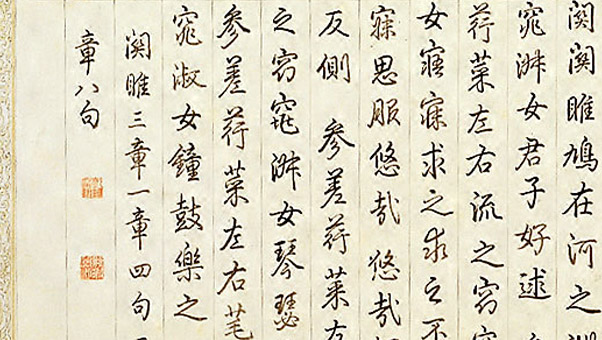 關關雎鳩在河之洲
窕淑女君子好逑
荇菜左右流之窈
女寤寐求之求之不
寐思服悠哉悠哉
反側 參差荇菜左
之窈窕淑女琴瑟
參差荇菜左右芼
窕淑女鐘鼓樂之
關雎三章一章四句
章八句